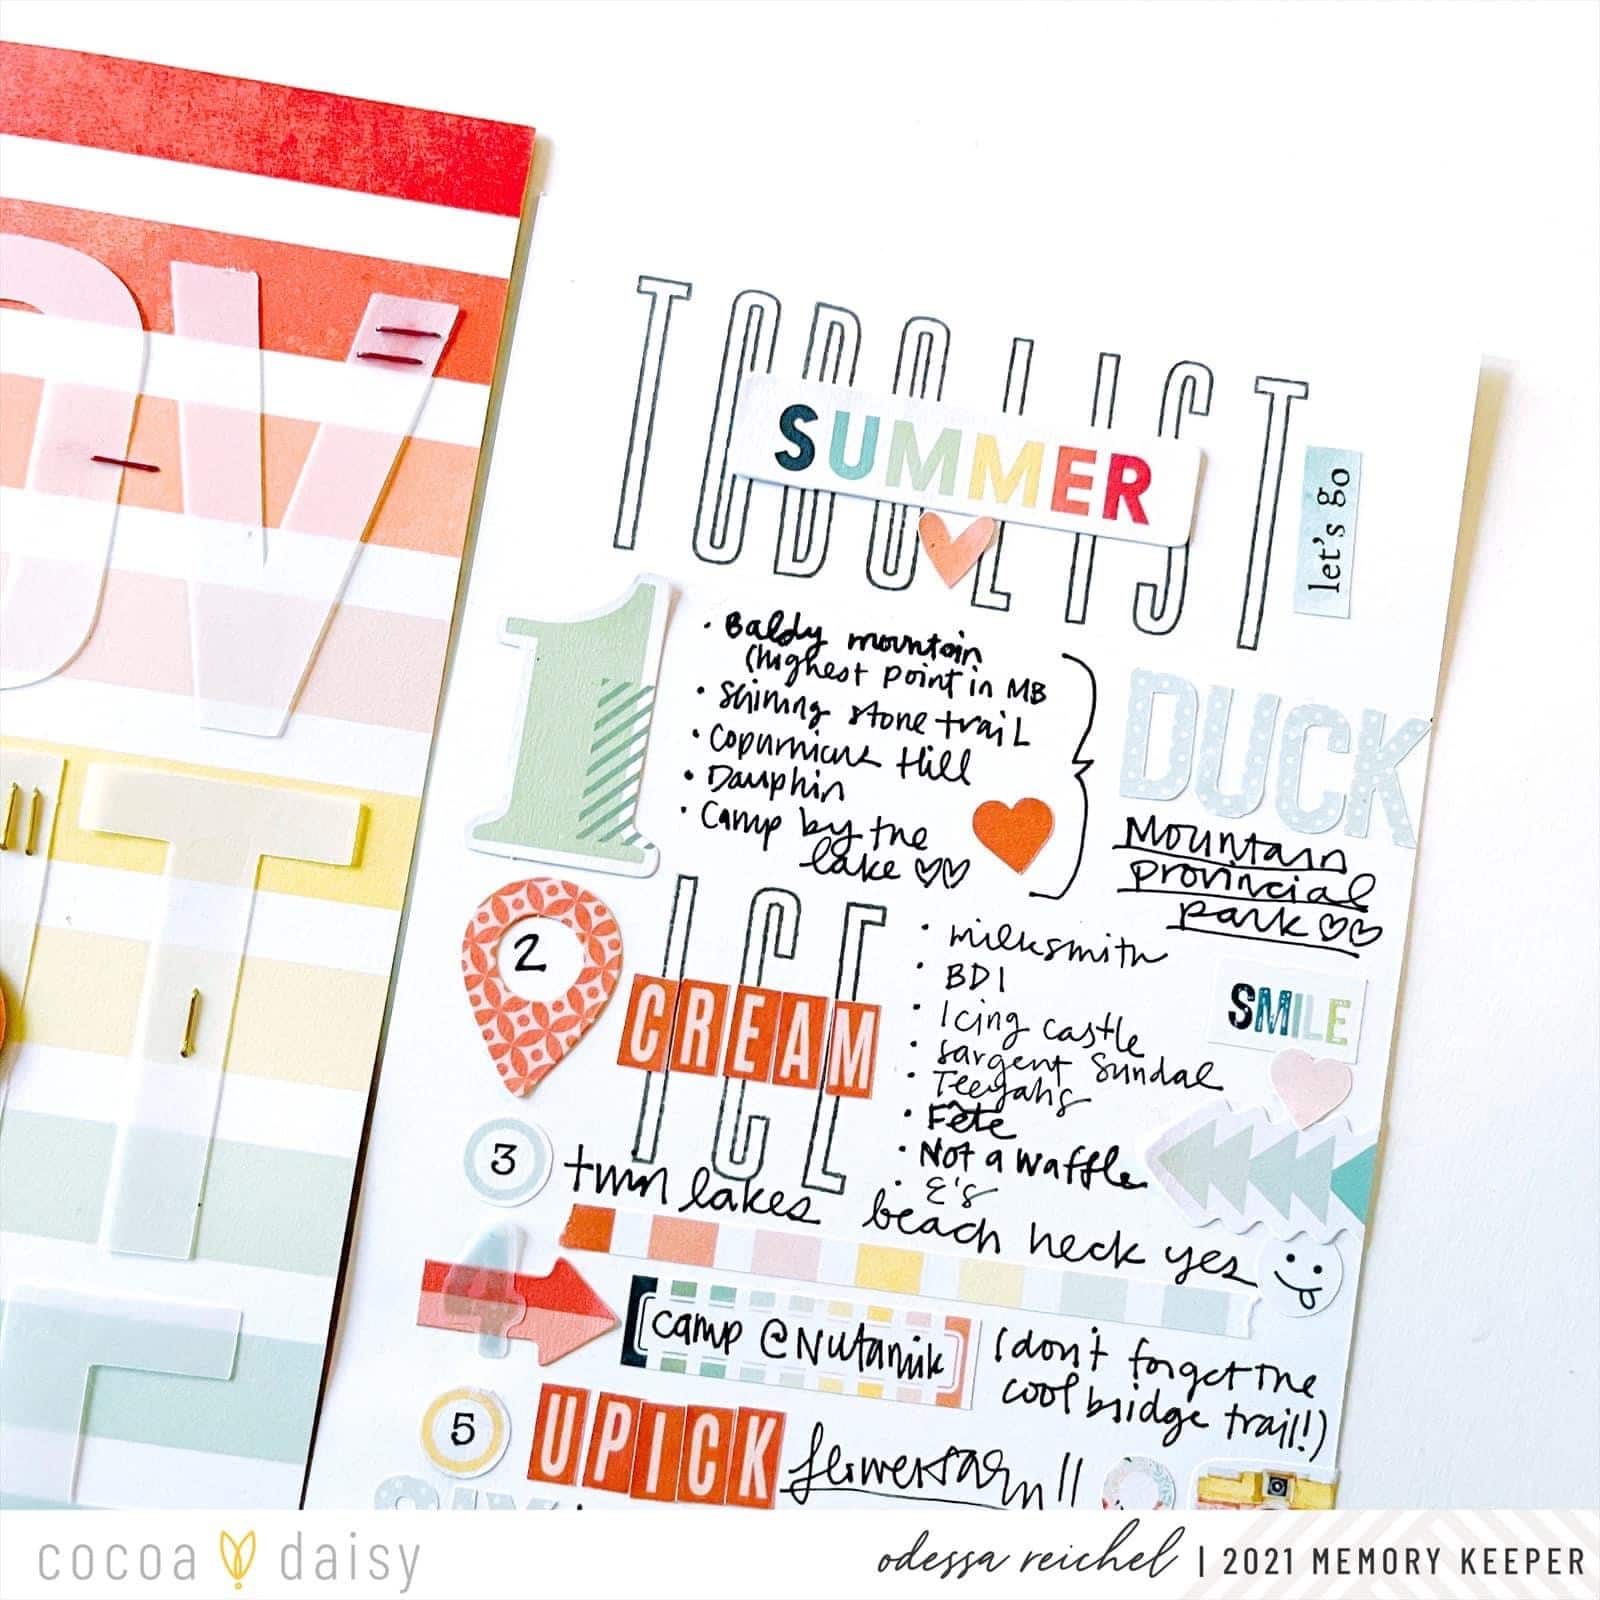 TO DO LIST
SUMMER
let's go
1
• Baldy mountain
(highest point in MB
• Shining stone trail
• Copurnicus Hill
• Dauphin
• Camp by the
lake
DUCK
Mountain
provincial
park
2
ICE
CREAM
• milksmith
• BDI
• Icing castle
• Sargent Sundae
• Teeyahs
• Fête
• Not a waffle
• E's
SMILE
3
twin lakes beach heck yes
4
camp @ Nutamik
(don't forget the
cool bridge trail!)
5
UPICK flowersfarm!!
cocoa daisy
odessa reichel | 2021 MEMORY KEEPER